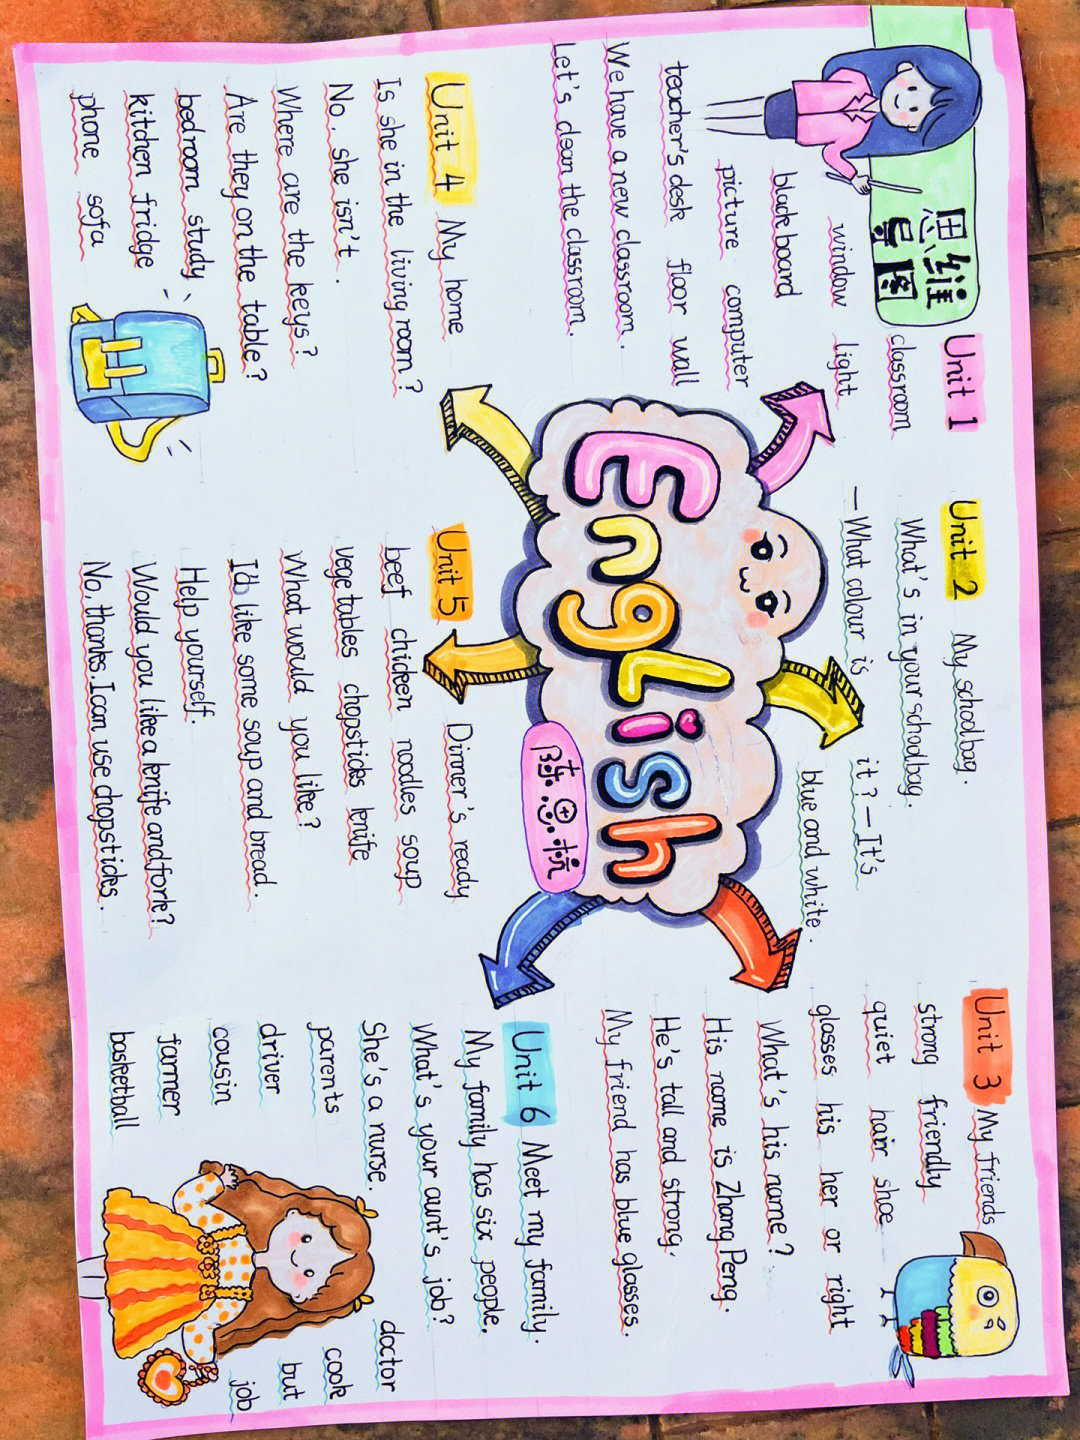 思维
导图
Unit 1
classroom
window light
blackboard
picture computer
teacher's desk floor wall
We have a new classroom.
Let's clean the classroom.
Unit 2 My schoolbag.
What's in your schoolbag.
—What colour is it? —It's
blue and white.
Unit 3 My friends
strong friendly
quiet hair shoe
glasses his her or right
What's his name?
His name is Zhang Peng.
He's tall and strong.
My friend has blue glasses.
English
Unit 4 My home
Is she in the living room?
No, she isn't.
Where are the keys?
Are they on the table?
bedroom study
kitchen fridge
phone sofa
Unit 5 Dinner's ready
beef chicken noodles soup
vegetables chopsticks knife
What would you like?
I'd like some soup and bread.
Help yourself.
Would you like a knife and fork?
No, thanks. I can use chopsticks.
Unit 6 Meet my family.
My family has six people.
What's your aunt's job?
She's a nurse. doctor
parents cook
driver but
cousin job
farmer
basketball